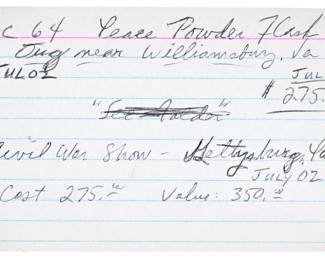 c 64 Peace Powder Flask
Dug near Williamsburg, Va
JUL 02 JUL
$ 275.
Civil War Show - Gettysburg, Pa
JULY 02
Cost 275.00 Value: 350.00